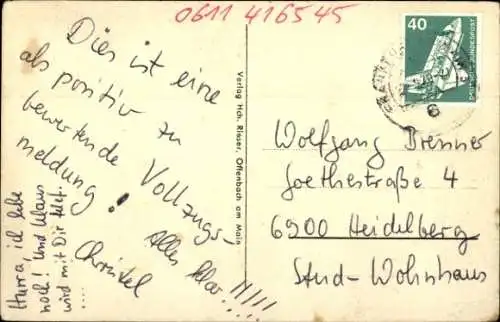 0611 416545
Dies ist eine
als positiv zu
bewertende Vollzugs,
meldung!
Alles klar!!!!!!
Christel
Hurra, ich lebe
noch! Und Klaus
wird mit Dir telef.
....
Verlag Hch. Risser, Offenbach am Main
40
DEUTSCHE BUNDESPOST
6
Wolfgang Brenner
Goethestraße 4
6900 Heidelberg
Stud-Wohnhaus